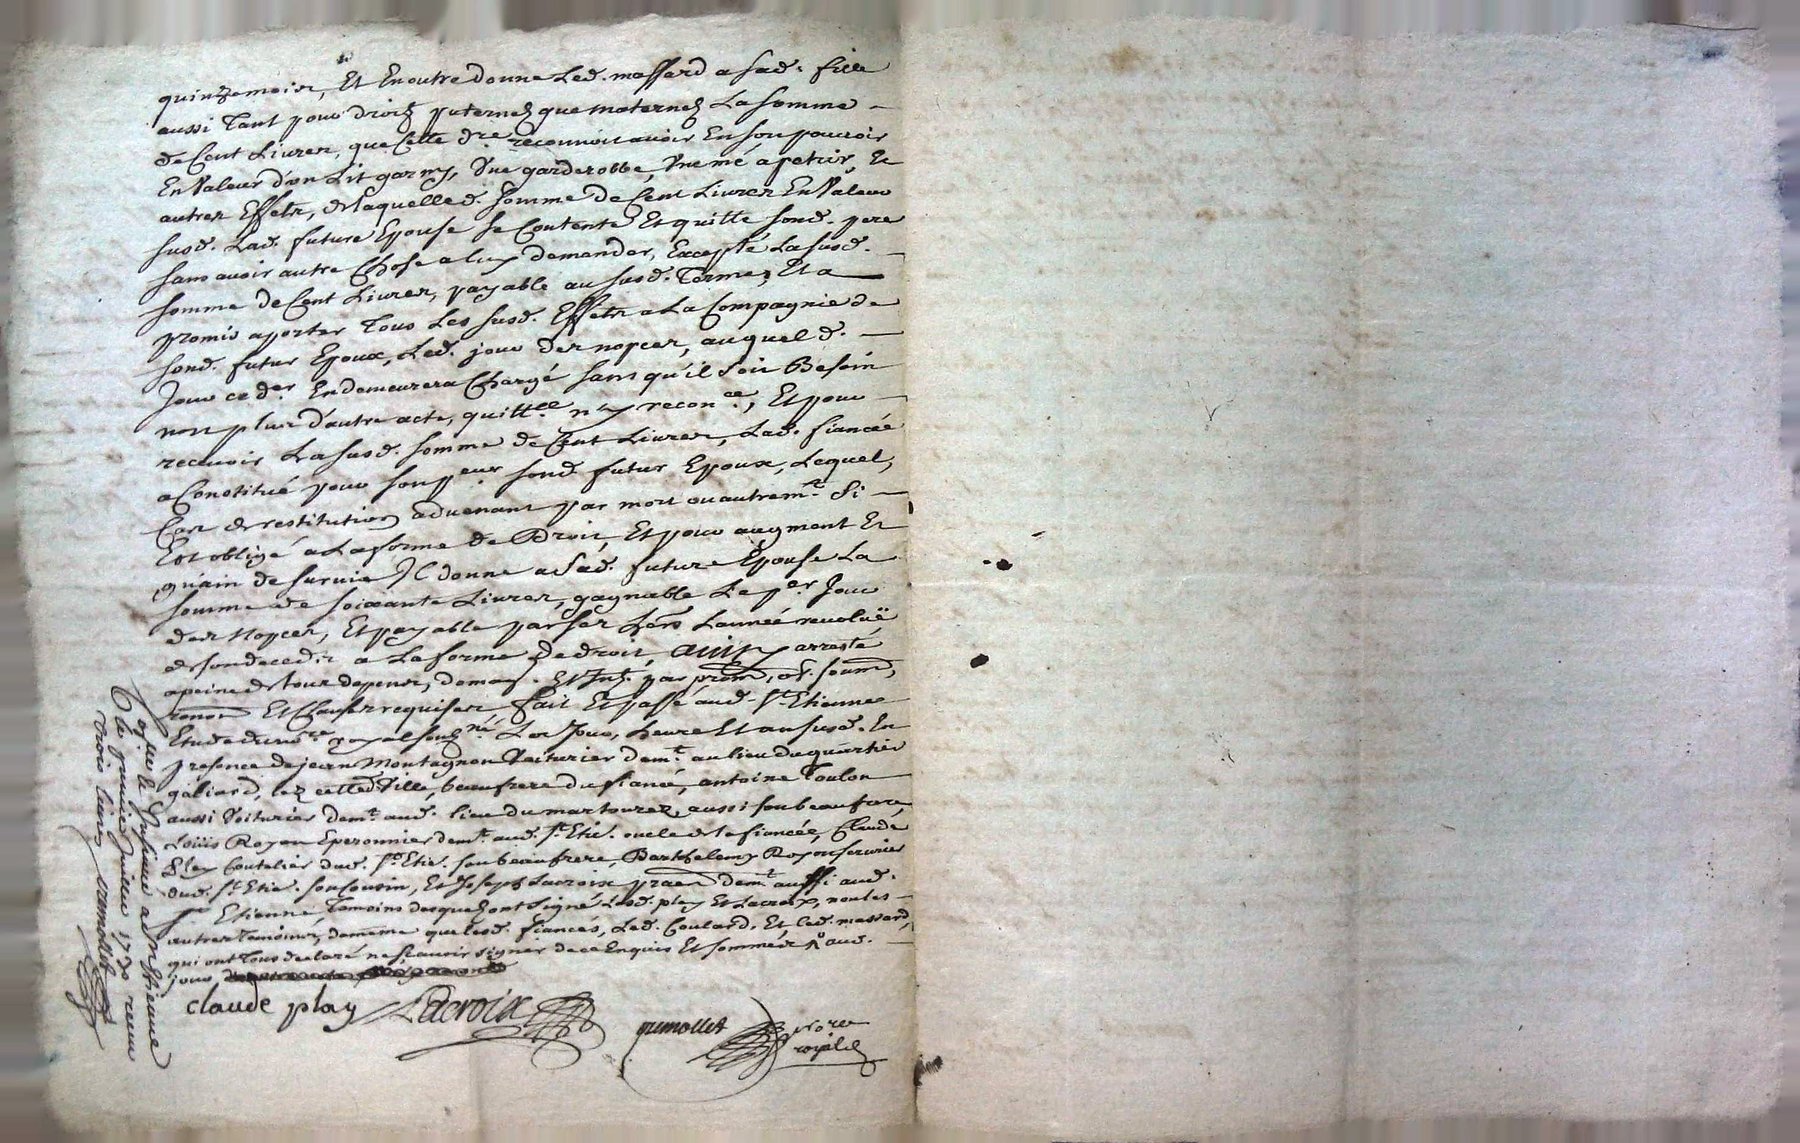 quinze mois, Et En outre donne Led. massard a sad. fille
aussi Tant pour droitz paternelz que maternelz La somme
de Cent Livres, que Cette dre. reconnoit avoir En son pouvoir
En Valeur d'un Lit garny, Une garderobbe, Une mé a petrir, Et
autres Effets, de laquelle d. somme de Cent Livres En Valeur
susd. Lad. future Epouse se Contente Et quitte sond. pere
sans avoir autre Chose a luy demander, Excepté La susd.
somme de Cent Livres, payable au susd. Terme, Et a
promis aporter Tous Les susd. Effets a La Compagnie de
sond. futur Epoux, Led. jour des nopces, auquel d.
Jour ce der. En demeurera Chargé sans qu'il soit Besoin
non plus d'autre acte, quittce. ny reconce., Et pour
recevoir La susd. somme de Cent Livres, Lad. fiancée
a Constitué pour son peur. sond. futur Epoux, Lequel,
Cas de restitution advenant par mort ou autremt. si
Est obligé a La forme de Droit, Et pour augment Et
guain de survie Il donne a Sad. future Epouse La
somme de soixante Livres, gagnable Le per. Jour
des Nopces, Et payable par ses hers. L'année revoluë
de son decedz a La forme de droit, ainsy arresté
a peine de tous depens, domag. Et Int. par prom, ob. soum,
renon Et Clauses requises fait Et passé aud. St. Etienne
Etude du nore. royal soubzné. Les Jour, heure Et an susd. En
presence de jean Montagnon Voiturier demt. au lieu du quartier
galiard, lez cetted. Ville, beaufrere du fiancé, antoine Toulon
aussi Voiturier demt. aud. lieu du martourez, aussi son beaufrere,
Loüis Royon Eperonnier demt. aud. St. Etie. oncle de la fiancée, Claude
Play Coutelier dud. St. Etie. son beaufrere, Barthelemy Royon serurier
dud. St. Etie. son Cousin, Et Joseph Lacroix praen demt. aussi aud.
St. Etienne Temoins desquelz ont signé Lesd. play Et Lacroix, non les
autres temoins, de meme que lesd. fiancés, Led. Coulard, Et led. massard,
qui ont Tous declaré ne sçavoir signer de ce Enquis Et sommés aud.
jour
claude play Lacroix
gumollet nore
royal
Controllé Et Insinué a St. Etienne
le premier Juillet 1730 receu
trois livres